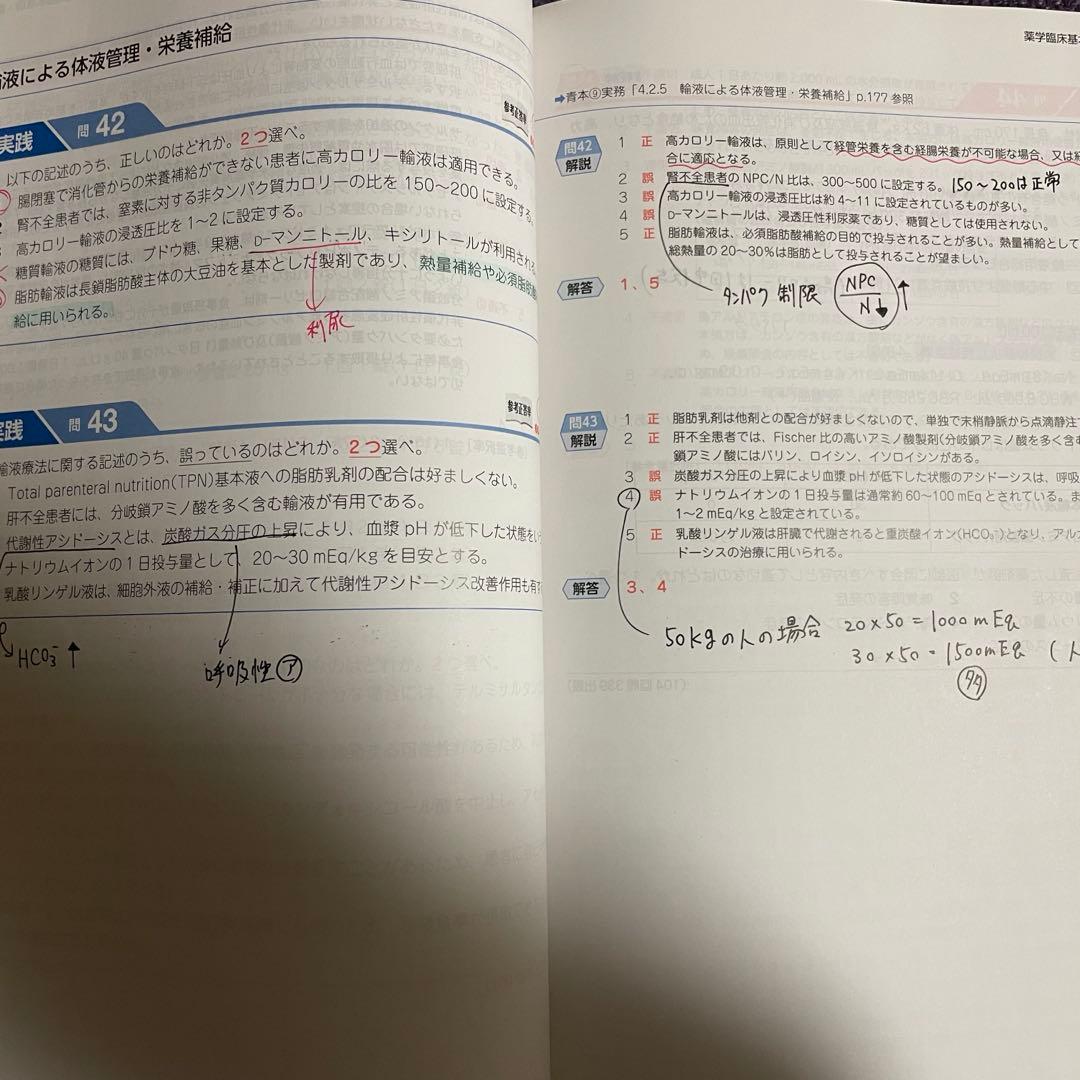 液による体液管理・栄養補給
実践 問 42
参考正答率
以下の記述のうち、正しいのはどれか。2つ選べ。
腸閉塞で消化管からの栄養補給ができない患者に高カロリー輸液は適用できる。
腎不全患者では、窒素に対する非タンパク質カロリーの比を 150～200 に設定する。
高カロリー輸液の浸透圧比を 1～2 に設定する。
糖質輸液の糖質には、ブドウ糖、果糖、D-マンニトール、キシリトールが利用される
脂肪輸液は長鎖脂肪酸主体の大豆油を基本とした製剤であり、熱量補給や必須脂肪酸
給に用いられる。
利尿
実践 問 43
参考正答率
輸液療法に関する記述のうち、誤っているのはどれか。2つ選べ。
Total parenteral nutrition(TPN)基本液への脂肪乳剤の配合は好ましくない。
肝不全患者には、分岐鎖アミノ酸を多く含む輸液が有用である。
代謝性アシドーシスとは、炭酸ガス分圧の上昇により、血漿 pH が低下した状態をい
ナトリウムイオンの 1 日投与量として、20～30 mEq/kg を目安とする。
乳酸リンゲル液は、細胞外液の補給・補正に加えて代謝性アシドーシス改善作用も有
HCO3⁻ ↑
呼吸性㋐
薬学臨床基
➡青本⑨実務「4.2.5 輸液による体液管理・栄養補給」p.177 参照
問42 解説
1 正 高カロリー輸液は、原則として経管栄養を含む経腸栄養が不可能な場合、又は経
合に適応となる。
2 誤 腎不全患者の NPC/N 比は、300～500 に設定する。 150～200は正常
3 誤 高カロリー輸液の浸透圧比は約 4～11 に設定されているものが多い。
4 誤 D-マンニトールは、浸透圧性利尿薬であり、糖質としては使用されない。
5 正 脂肪輸液は、必須脂肪酸補給の目的で投与されることが多い。熱量補給として
総熱量の 20～30%は脂肪として投与されることが望ましい。
解答 1、5
タンパク制限 NPC/N↓ ↑
問43 解説
1 正 脂肪乳剤は他剤との配合が好ましくないので、単独で末梢静脈から点滴静注
2 正 肝不全患者では、Fischer 比の高いアミノ酸製剤(分岐鎖アミノ酸を多く含
鎖アミノ酸にはバリン、ロイシン、イソロイシンがある。
3 誤 炭酸ガス分圧の上昇により血漿 pH が低下した状態のアシドーシスは、呼吸
4 誤 ナトリウムイオンの 1 日投与量は通常約 60～100 mEq とされている。ま
1～2 mEq/kg と設定されている。
5 正 乳酸リンゲル液は肝臓で代謝されると重炭酸イオン(HCO₃⁻)となり、アルカ
ドーシスの治療に用いられる。
解答 3、4
50kgの人の場合 20×50=1000mEq
30×50=1500mEq (人